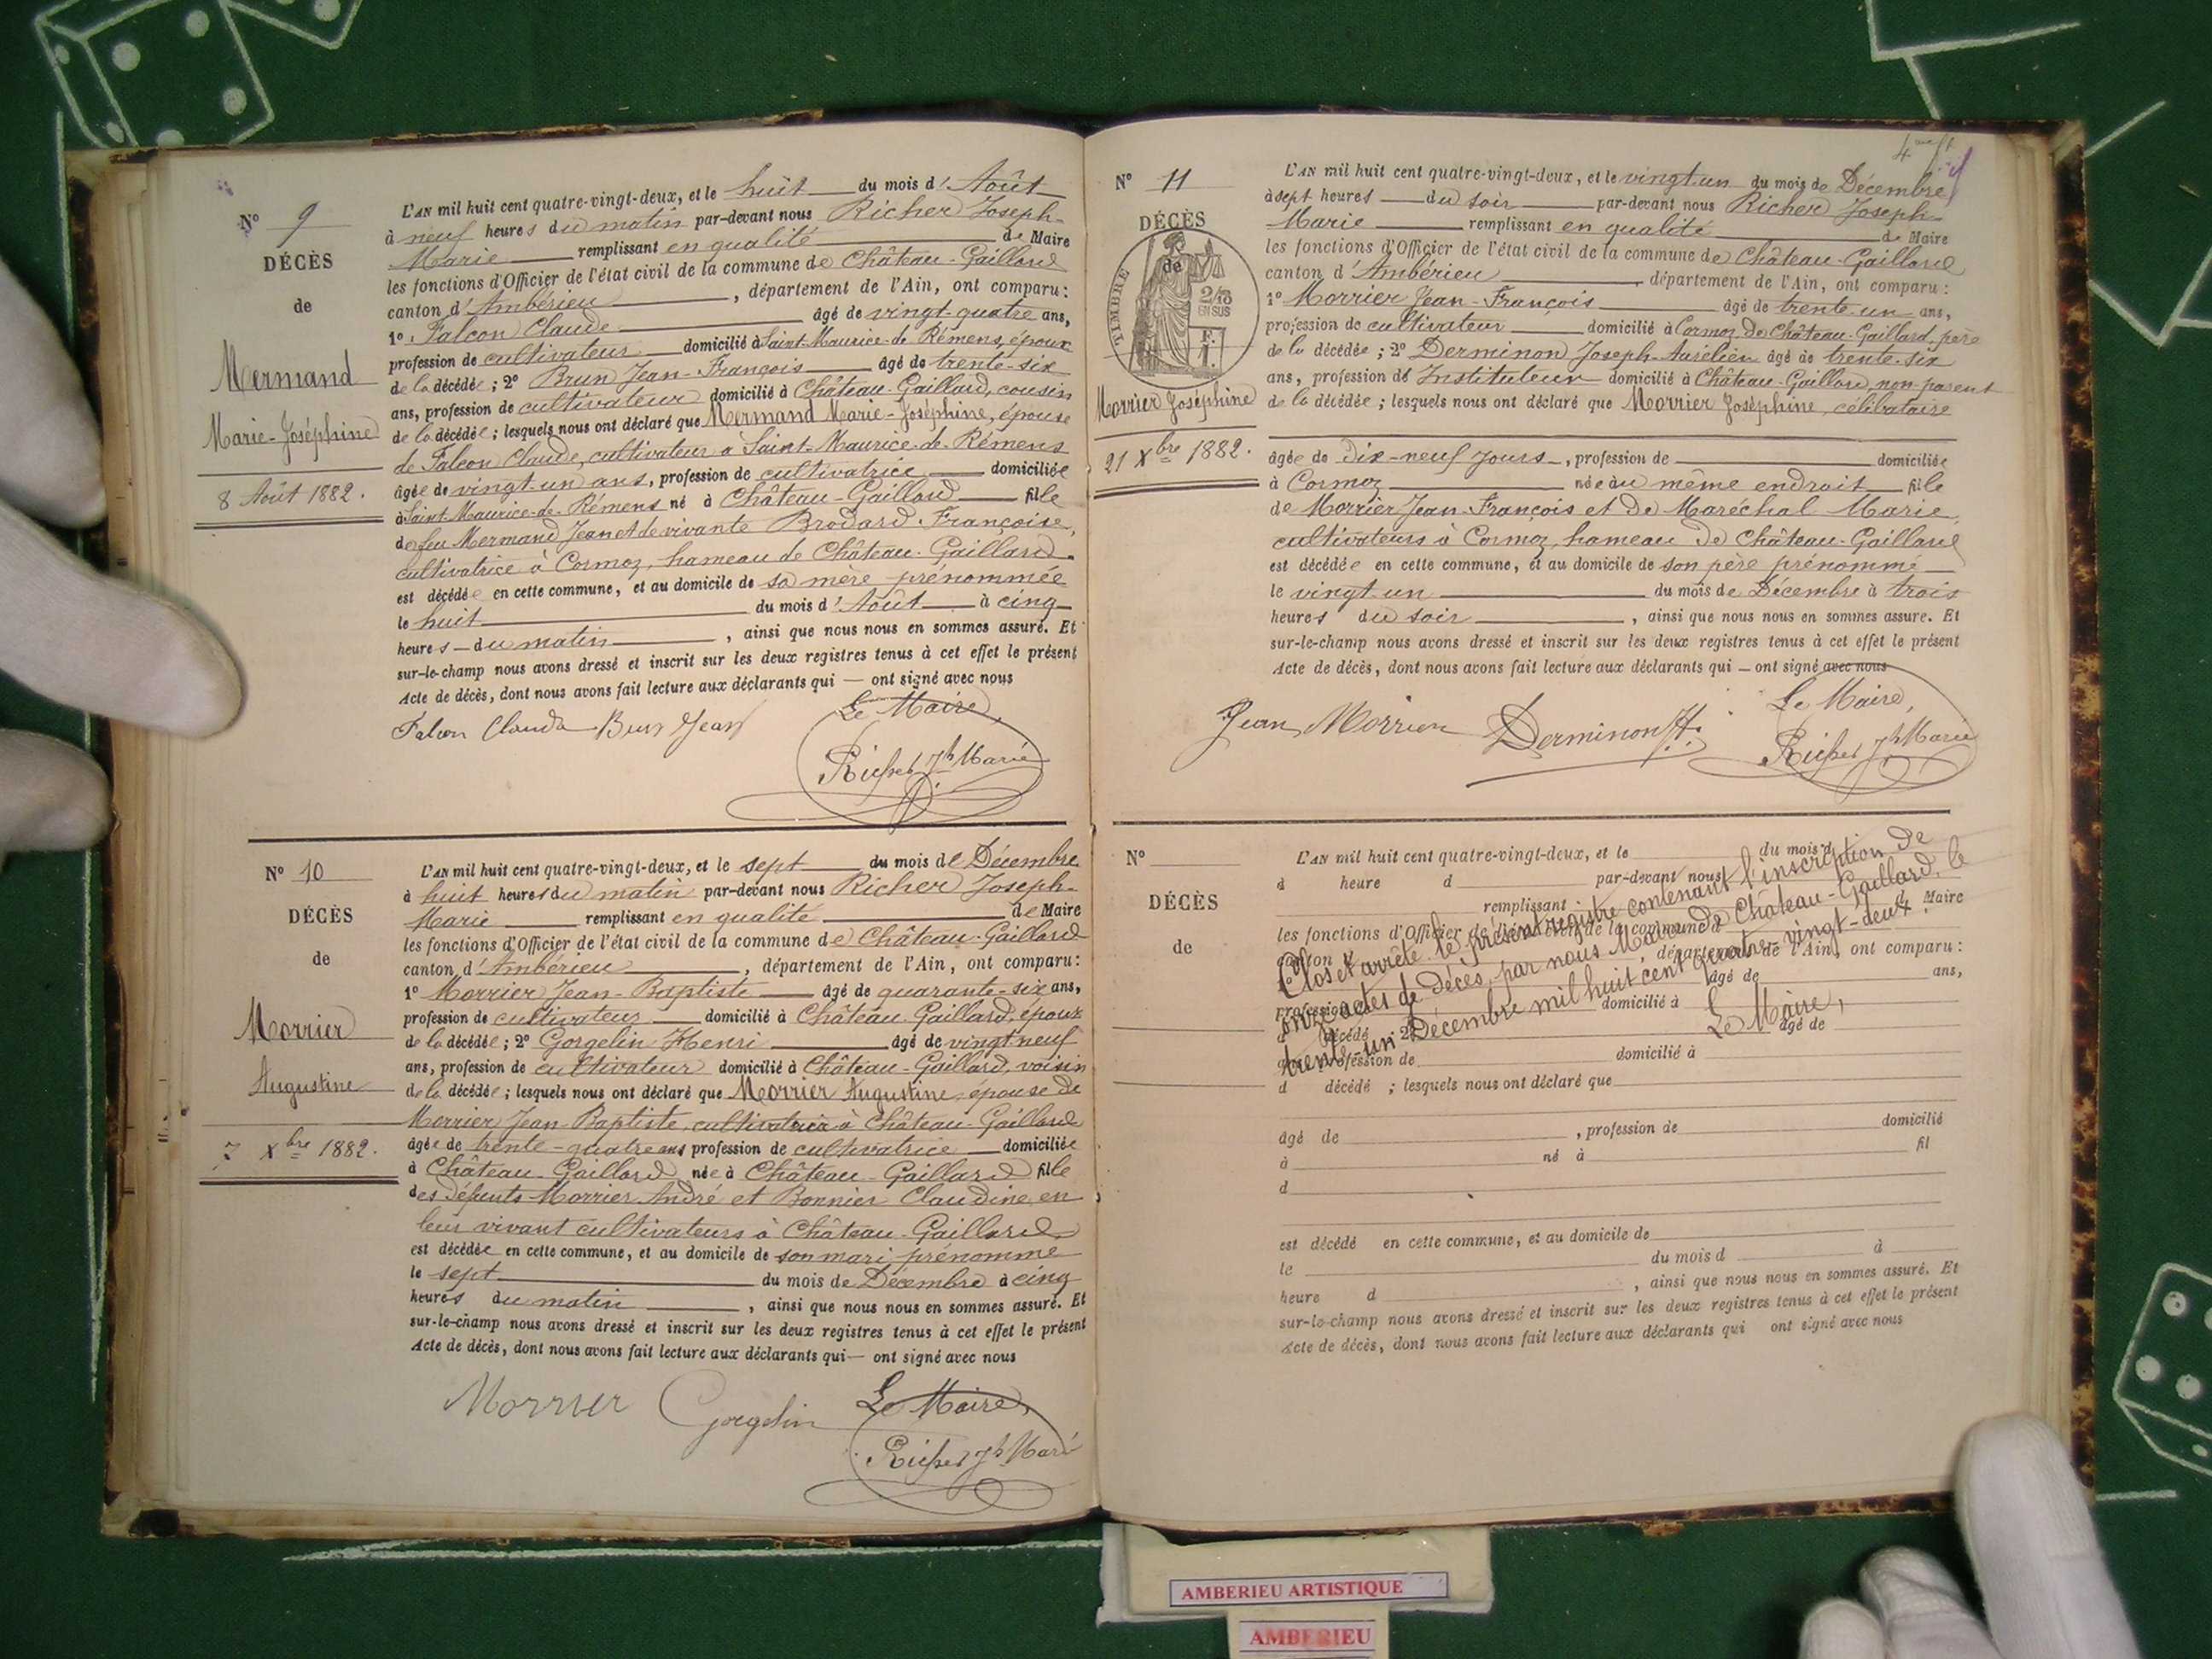 N° 9
DÉCÈS
de
Mermand
Marie-Joséphine
8 Août 1882.
L'AN mil huit cent quatre-vingt-deux, et le huit du mois d'Août
à neuf heures du matin par-devant nous Richer Joseph-
Marie remplissant en qualité de Maire
les fonctions d'Officier de l'état civil de la commune de Château-Gaillard
canton d'Ambérieu, département de l'Ain, ont comparu:
1° Falcon Claude âgé de vingt-quatre ans,
profession de cultivateur domicilié à Saint-Maurice-de-Rémens, époux
de la décédée; 2° Brun Jean-François âgé de trente-six
ans, profession de cultivateur domicilié à Château-Gaillard, cousin
de la décédée; lesquels nous ont déclaré que Mermand Marie-Joséphine, épouse
de Falcon Claude, cultivateur à Saint-Maurice-de-Rémens
âgée de vingt-un ans, profession de cultivatrice domiciliée
à Saint-Maurice-de-Rémens né à Château-Gaillard fille
de feu Mermand Jean et de vivante Brodard Françoise,
cultivatrice à Cormoz, hameau de Château-Gaillard.
est décédée en cette commune, et au domicile de sa mère prénommée
le huit du mois d'Août à cinq
heures du matin, ainsi que nous nous en sommes assuré. Et
sur-le-champ nous avons dressé et inscrit sur les deux registres tenus à cet effet le présent
Acte de décès, dont nous avons fait lecture aux déclarants qui — ont signé avec nous
Le Maire,
Falcon Claude Brun Jean
Richer Jh Marie
N° 10
DÉCÈS
de
Morrier
Augustine
7 Xbre 1882.
L'AN mil huit cent quatre-vingt-deux, et le sept du mois de Décembre
à huit heures du matin par-devant nous Richer Joseph-
Marie remplissant en qualité de Maire
les fonctions d'Officier de l'état civil de la commune de Château-Gaillard
canton d'Ambérieu, département de l'Ain, ont comparu:
1° Morrier Jean-Baptiste âgé de quarante-six ans,
profession de cultivateur domicilié à Château-Gaillard, époux
de la décédée; 2° Gorgelin Henri âgé de vingt-neuf
ans, profession de cultivateur domicilié à Château-Gaillard, voisin
de la décédée; lesquels nous ont déclaré que Morrier Augustine, épouse de
Morrier Jean-Baptiste, cultivatrice à Château-Gaillard
âgée de trente-quatre ans profession de cultivatrice domiciliée
à Château-Gaillard née à Château-Gaillard fille
des défunts Morrier André et Bonnier Claudine, en
leur vivant cultivateurs à Château-Gaillard
est décédée en cette commune, et au domicile de son mari prénommé
le sept du mois de Décembre à cinq
heures du matin, ainsi que nous nous en sommes assuré. Et
sur-le-champ nous avons dressé et inscrit sur les deux registres tenus à cet effet le présent
Acte de décès, dont nous avons fait lecture aux déclarants qui — ont signé avec nous
Morrier Gorgelin Le Maire,
Richer Jh Marie
N° 11
DÉCÈS
de
TIMBRE
2/10
EN SUS
F.
1.
Morrier Joséphine
21 Xbre 1882.
L'AN mil huit cent quatre-vingt-deux, et le vingt-un du mois de Décembre
à sept heures du soir par-devant nous Richer Joseph-
Marie remplissant en qualité de Maire
les fonctions d'Officier de l'état civil de la commune de Château-Gaillard
canton d'Ambérieu, département de l'Ain, ont comparu:
1° Morrier Jean-François âgé de trente-un ans,
profession de cultivateur domicilié à Cormoz de Château-Gaillard, père
de la décédée; 2° Derminon Joseph-Aurélien âgé de trente-six
ans, profession de Instituteur domicilié à Château-Gaillard, non-parent
de la décédée; lesquels nous ont déclaré que Morrier Joséphine, célibataire
âgée de dix-neuf jours, profession de domiciliée
à Cormoz née au même endroit fille
de Morrier Jean-François et de Maréchal Marie,
cultivateurs à Cormoz, hameau de Château-Gaillard
est décédée en cette commune, et au domicile de son père prénommé
le vingt-un du mois de Décembre à trois
heures du soir, ainsi que nous nous en sommes assuré. Et
sur-le-champ nous avons dressé et inscrit sur les deux registres tenus à cet effet le présent
Acte de décès, dont nous avons fait lecture aux déclarants qui — ont signé avec nous
Le Maire,
Jean Morrier Derminon
Richer Jh Marie
N°
DÉCÈS
de
L'AN mil huit cent quatre-vingt-deux, et le du mois d
à heure d par-devant nous
remplissant d Maire
les fonctions d'Officier de l'état civil de la commune d
canton, département de l'Ain, ont comparu:
âgé de ans,
profession domicilié à
d décédé 2° âgé de
ans, profession de domicilié à
d décédé ; lesquels nous ont déclaré que
âgé de, profession de domicilié
à né à fil
d
est décédé en cette commune, et au domicile de
le du mois d à
heure d, ainsi que nous nous en sommes assuré. Et
sur-le-champ nous avons dressé et inscrit sur les deux registres tenus à cet effet le présent
Acte de décès, dont nous avons fait lecture aux déclarants qui ont signé avec nous
Clos et arrêté le présent registre contenant l'inscription de
onze actes de décès, par nous Maire de Château-Gaillard, le
trente-un Décembre mil huit cent quatre-vingt-deux.
Le Maire,
AMBERIEU ARTISTIQUE
AMBERIEU